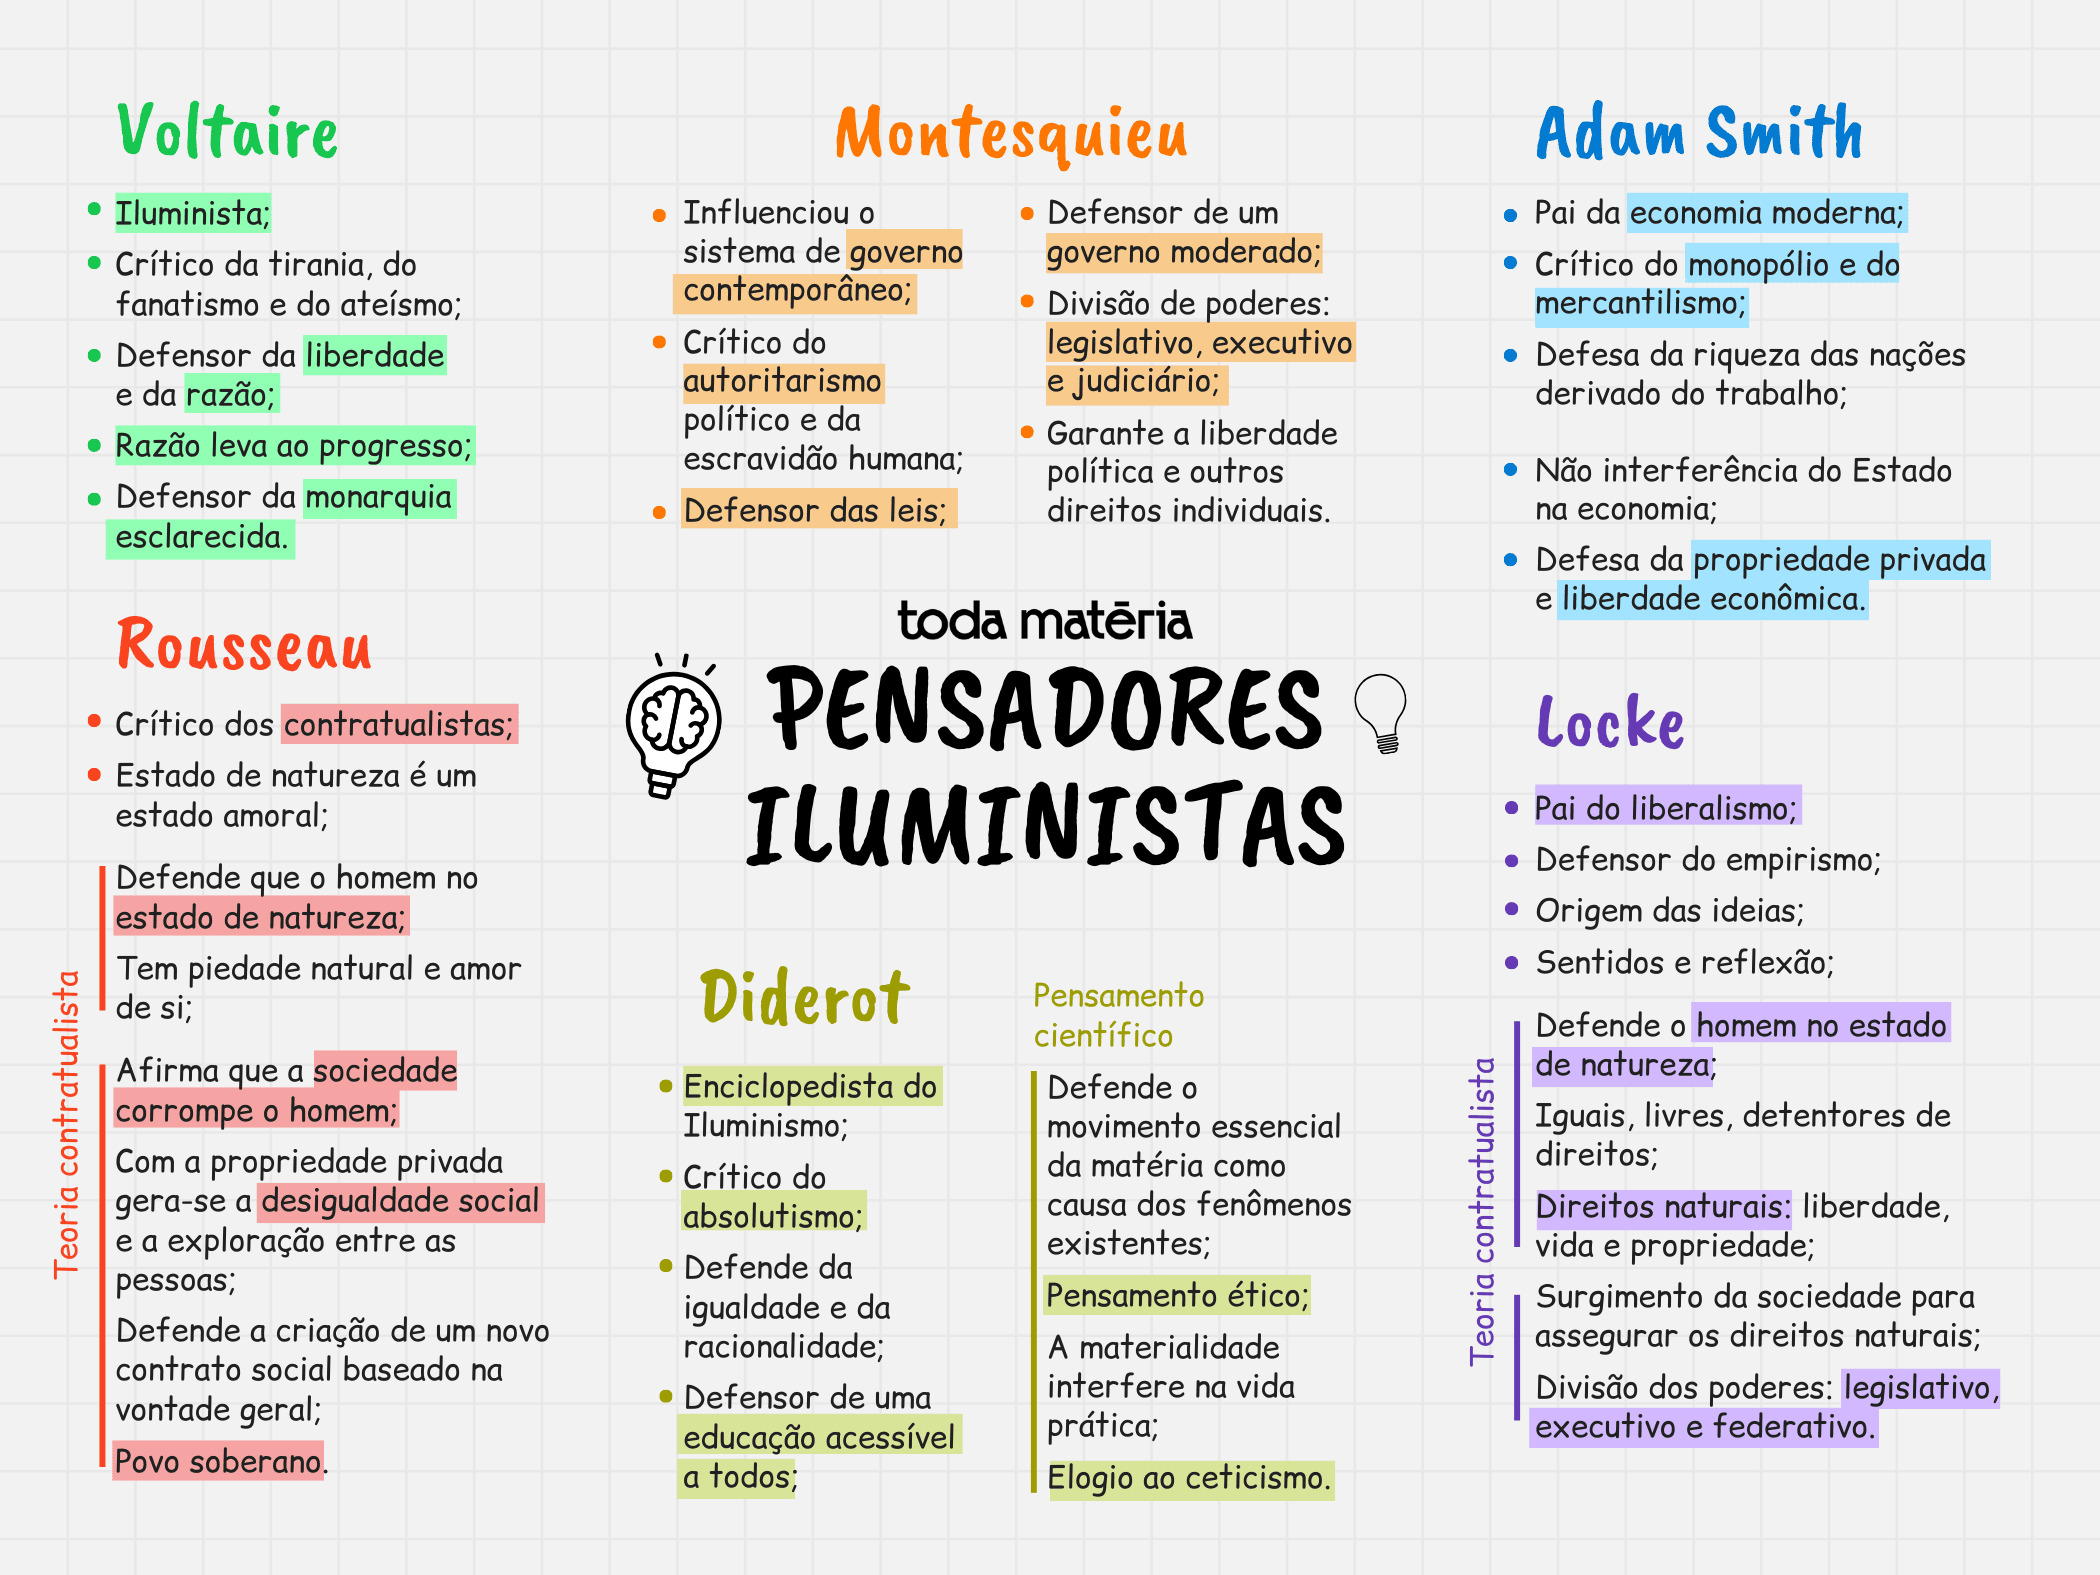 Voltaire
Iluminista;
Crítico da tirania, do
fanatismo e do ateísmo;
Defensor da liberdade
e da razão;
Razão leva ao progresso;
Defensor da monarquia
esclarecida.
Montesquieu
Influenciou o
sistema de governo
contemporâneo;
Crítico do
autoritarismo
político e da
escravidão humana;
Defensor das leis;
Defensor de um
governo moderado;
Divisão de poderes:
legislativo, executivo
e judiciário;
Garante a liberdade
política e outros
direitos individuais.
Adam Smith
Pai da economia moderna;
Crítico do monopólio e do
mercantilismo;
Defesa da riqueza das nações
derivado do trabalho;
Não interferência do Estado
na economia;
Defesa da propriedade privada
e liberdade econômica.
toda matéria
PENSADORES
ILUMINISTAS
Rousseau
Crítico dos contratualistas;
Estado de natureza é um
estado amoral;
Teoria contratualista
Defende que o homem no
estado de natureza;
Tem piedade natural e amor
de si;
Afirma que a sociedade
corrompe o homem;
Com a propriedade privada
gera-se a desigualdade social
e a exploração entre as
pessoas;
Defende a criação de um novo
contrato social baseado na
vontade geral;
Povo soberano.
Diderot
Enciclopedista do
Iluminismo;
Crítico do
absolutismo;
Defende da
igualdade e da
racionalidade;
Defensor de uma
educação acessível
a todos;
Pensamento
científico
Defende o
movimento essencial
da matéria como
causa dos fenômenos
existentes;
Pensamento ético;
A materialidade
interfere na vida
prática;
Elogio ao ceticismo.
Locke
Pai do liberalismo;
Defensor do empirismo;
Origem das ideias;
Sentidos e reflexão;
Teoria contratualista
Defende o homem no estado
de natureza;
Iguais, livres, detentores de
direitos;
Direitos naturais: liberdade,
vida e propriedade;
Surgimento da sociedade para
assegurar os direitos naturais;
Divisão dos poderes: legislativo,
executivo e federativo.